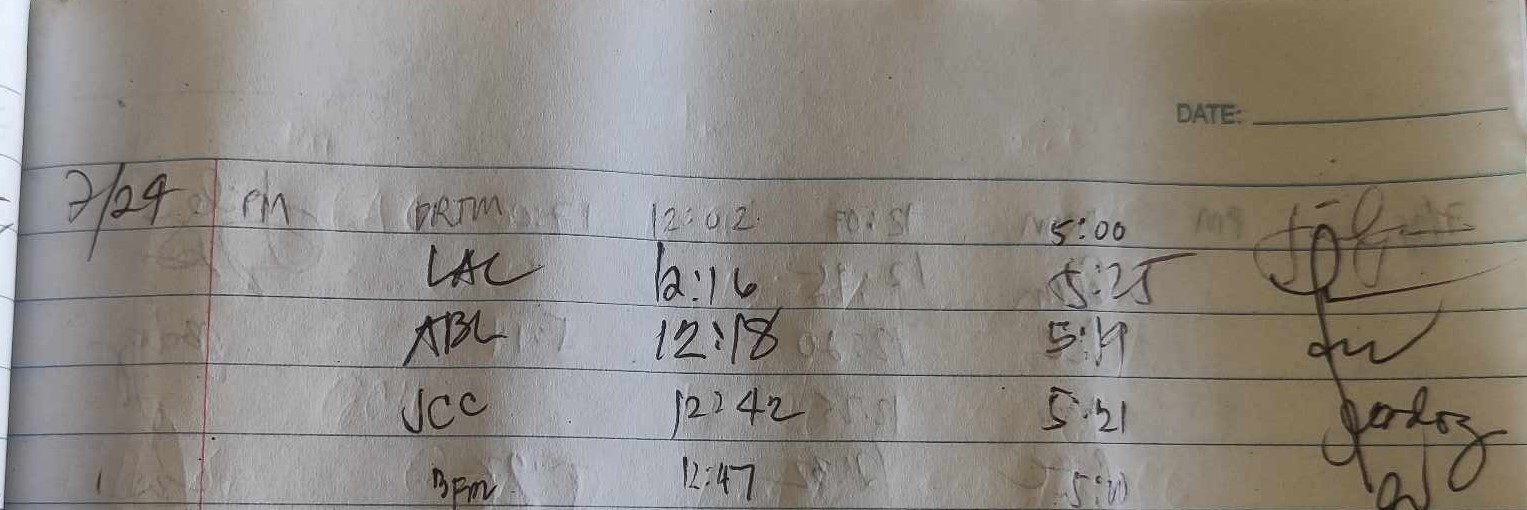 DATE:
7/24 PM DRTM 12:02 5:00
LAC 12:16 5:25
ABL 12:18 5:19
JCC 12:42 5:21
BFM 12:47